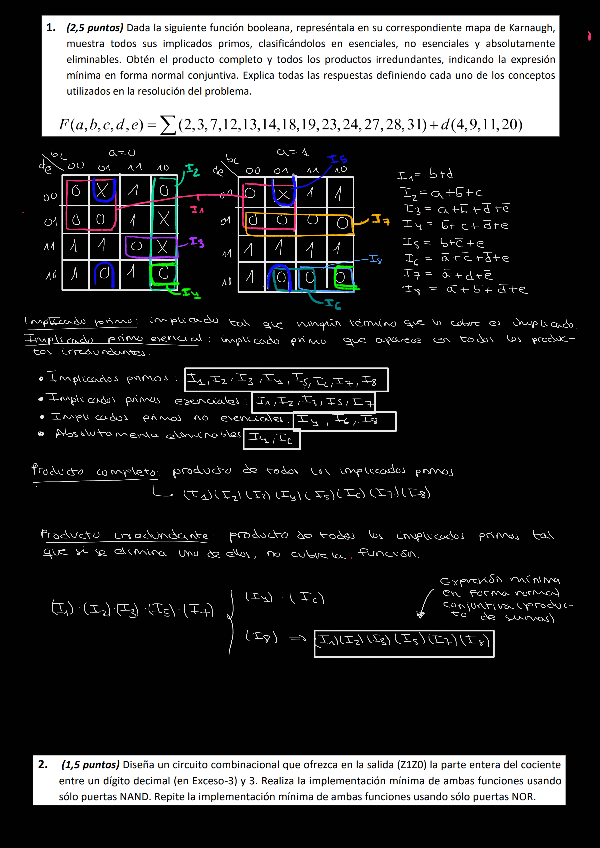 1. (2,5 puntos) Dada la siguiente función booleana, represéntala en su correspondiente mapa de Karnaugh,
muestra todos sus implicados primos, clasificándolos en esenciales, no esenciales y absolutamente
eliminables. Obtén el producto completo y todos los productos irredundantes, indicando la expresión
mínima en forma normal conjuntiva. Explica todas las respuestas definiendo cada uno de los conceptos
utilizados en la resolución del problema.
F(a,b,c,d,e) = ∑(2,3,7,12,13,14,18,19,23,24,27,28,31) + d(4,9,11,20)
bc a=0
de 00 01 11 10 I2
00 0 X 1 0
01 0 0 1 X I1
11 1 1 0 X I3
10 1 0 1 0
I4
bc a=1 I5
de 00 01 11 10
00 0 X 1 1
01 0 0 0 0 I7
11 1 1 1 1
10 1 0 0 0 I8
I6
I1 = b+d
I2 = a+b̅+c
I3 = a+b̅+d̅+e̅
I5 = b+c̅+e
I7 = a̅+d+e̅
I8 = a̅+b̅+d̅+e
Implicado primo: implicado tal que ningún término que lo cubre es implicado.
Implicado primo esencial: implicado primo que aparece en todos los produc-
tos irredundantes.
• Implicados primos: I1, I2, I3, I4, I5, I6, I7, I8
• Implicados primos esenciales: I1, I2, I3, I5, I7
• Implicados primos no esenciales: I4, I6, I8
• Absolutamente eliminables I4, I6
Producto completo: producto de todos los implicados primos
↳ (I1)(I2)(I3)(I4)(I5)(I6)(I7)(I8)
Producto irredundante producto de todos los implicados primos tal
que si se elimina uno de ellos, no cubre la función.
(I1)·(I2)·(I3)·(I5)·(I7)
(I4)·(I6)
(I8) ⇒ (I1)(I2)(I3)(I5)(I7)(I8)
Expresión mínima
en forma normal
conjuntiva (produc-
to de sumas)
2. (1,5 puntos) Diseña un circuito combinacional que ofrezca en la salida (Z1Z0) la parte entera del cociente
entre un dígito decimal (en Exceso-3) y 3. Realiza la implementación mínima de ambas funciones usando
sólo puertas NAND. Repite la implementación mínima de ambas funciones usando sólo puertas NOR.